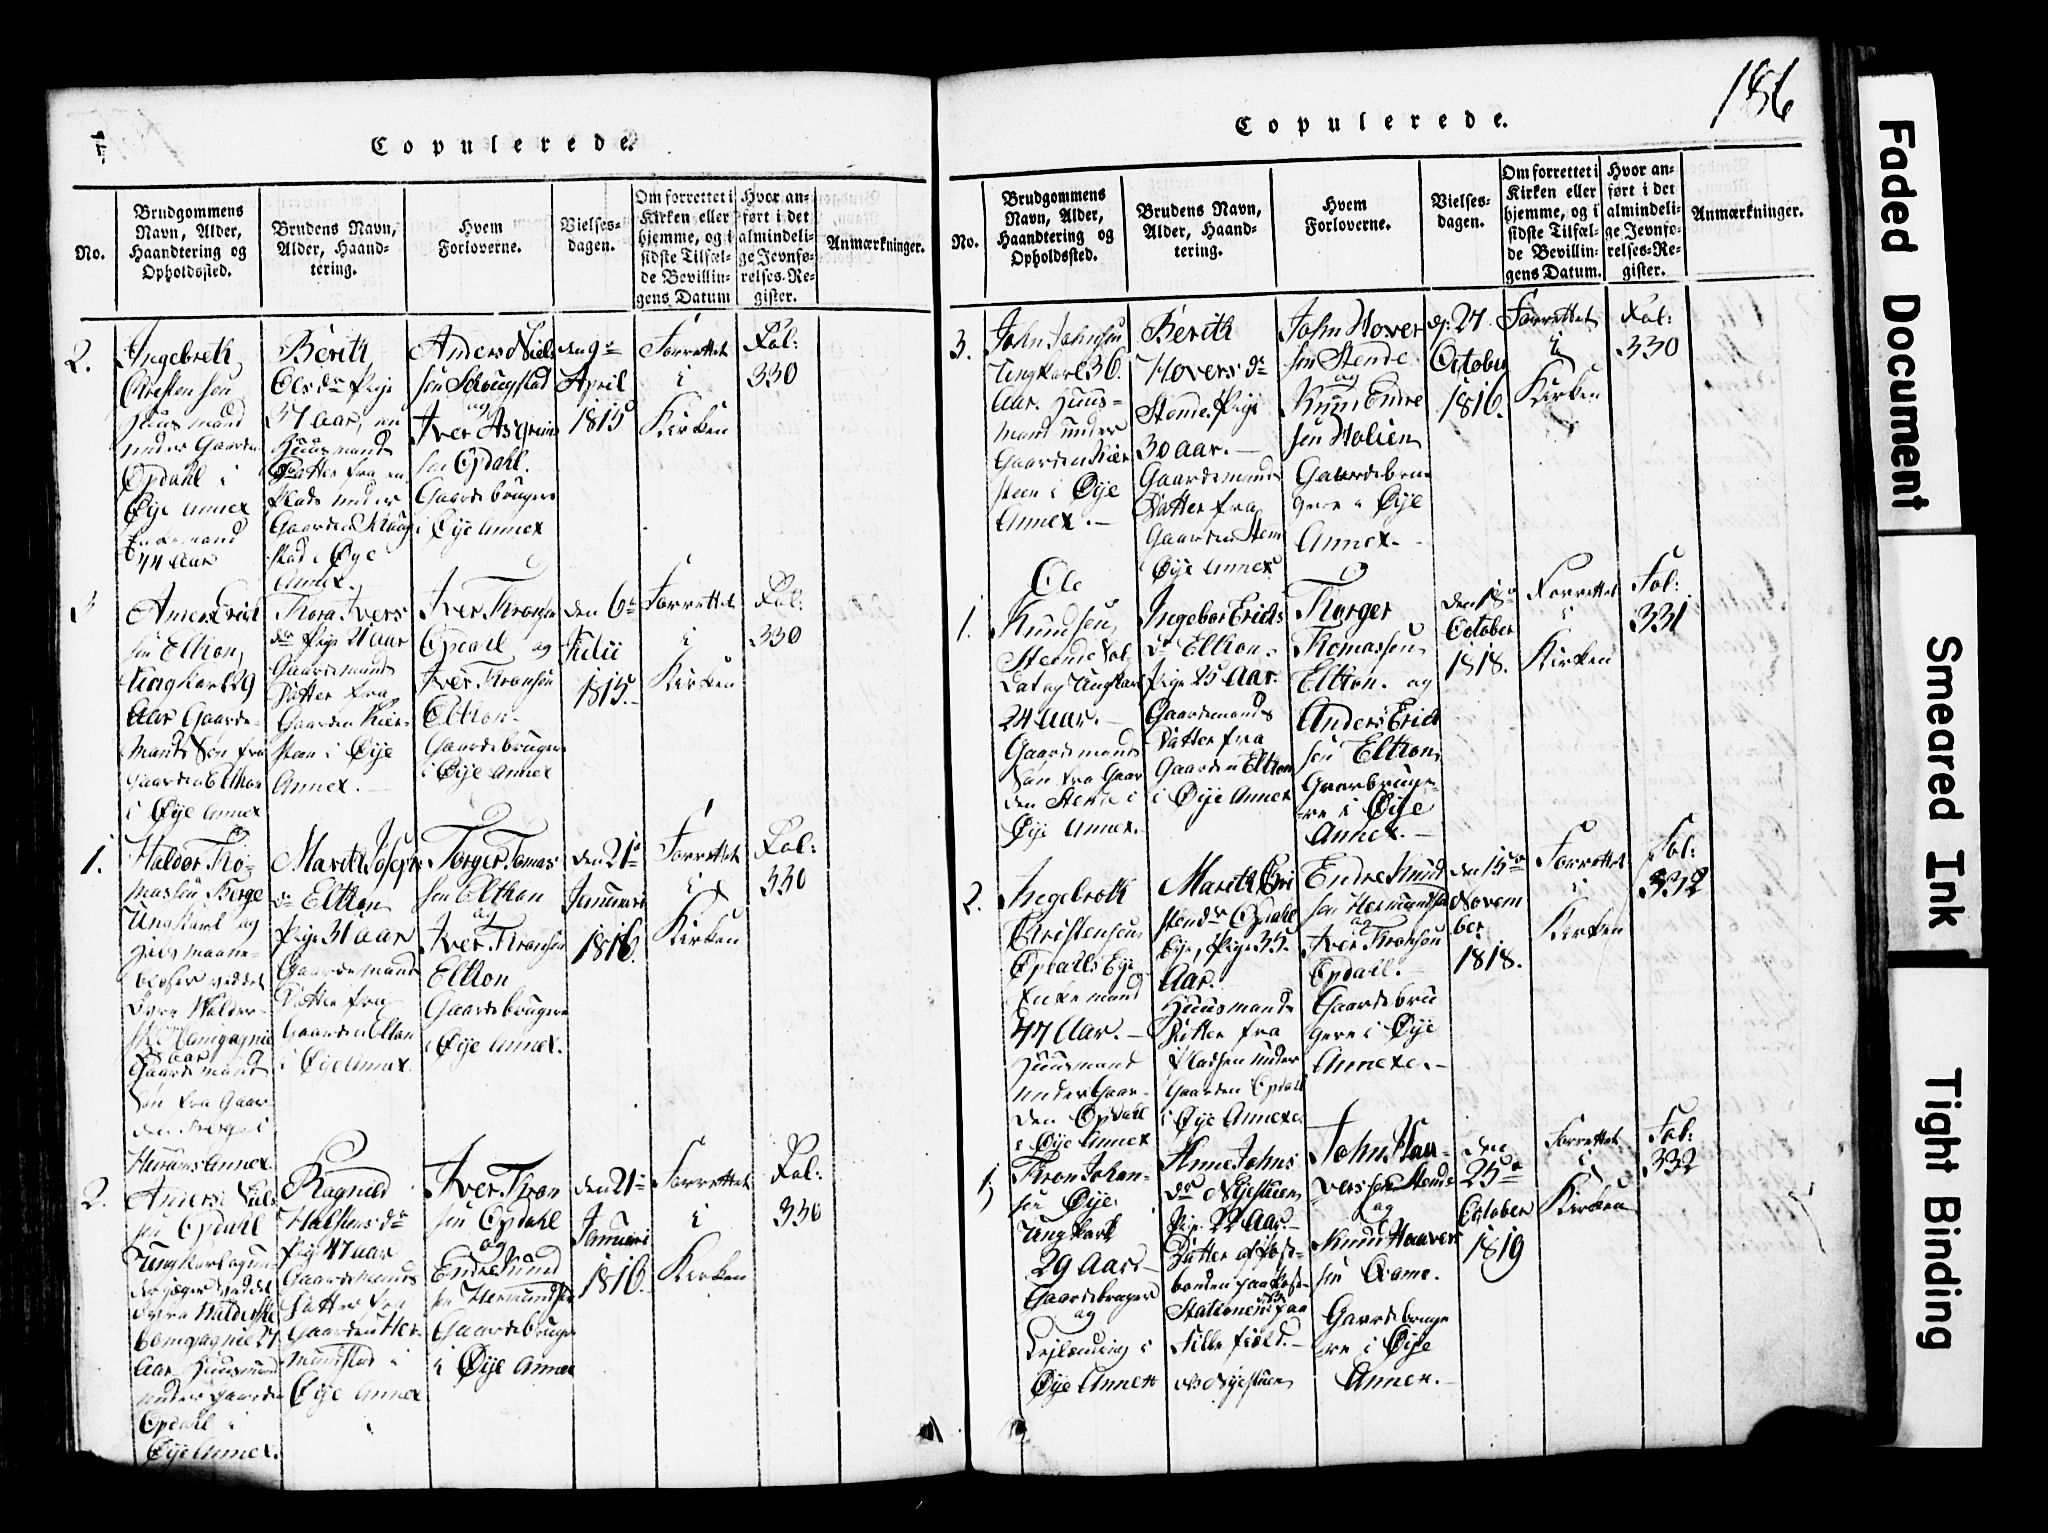 Copulerede.
No.
Brudgommens
Navn, Alder,
Haandtering og
Opholdssted.
Brudens Navn,
Alder, Haand-
tering.
Hvem
Forloverne.
Vielses-
dagen.
Om forrettet i
Kirken eller
hjemme, og i
sidste Tilfæl-
de Bevillin-
gens Datum
Hvor an-
ført i det
almindeli-
ge Jevnfø-
relses-Re-
gister.
Anmærkninger.
2.
Ingebreth
Christensen
Huusmand
under Gaarden
Opdahl i
Øye Annex
Enkemand
44 Aar
Berith
Olsdr Pige
37 Aar, en
Huusmands
Datter fra en
Plads under
Gaarden Skoug
stad i Øye
Annex.
Anders Niels
sen Schougstad
og
Iver Asgrim
sen Opdahl.
Gaardebrugere
i Øye Annex
den 9de
April
1815
Forrettet
i
Kirken
Fol:
330
3
Anders Erich
sen Elthon
Ungkarl 29
Aar Gaarde-
mands Søn fra
Gaarden Elthon
i Øye Annex
Thora Ivers
dr Pige 21 Aar
Gaardemands
Datter fra
Gaarden Kier-
steen i Øye
Annex.
Iver Thronsen
Opdahl og
Iver Thronsen
Elthon
Gaardebrugere
i Øye Annex
den 6te
Julii
1815.
Forrettet
i
Kirken
Fol:
330
1.
Haldor Tho-
massen Berge
Ungkarl og
ved det
Øvre Walder-
ske Compagnie
Aar
Gaardemands
Søn fra Gaar-
den Berge i
Hurums Annex.
Marith Joseph
dr Elthon
Pige 31 Aar
Gaardemands
Datter fra
Gaarden Elton
i Øye Annex.
Torger Tomas
sen Elthon
og
Iver Thronsen
Elthon
Gaardebrugere
i Øye Annex.
den 21de
Januari
1816.
Forrettet
i
Kirken
Fol:
330
2.
Anders Niels
sen Opdahl
Ungkarl og un
der jæger ved det
Øvre Walderske
Compagnie 27
Aar Huusmand
under Gaarden
Opdahl i
Øye Annex.
Ragnild
Halstensdr
Pige 47 Aar
Gaardemands
Datter fra
Gaarden Her
mundstad i
Øye Annex
Iver Thron
sen Opdahl
og
Endre Knud
sen Hermundstad
Gaardebrugere
i Øye Annex
den 21de
Januari
1816.
Forrettet
i
Kirken
Fol:
330
186
Copulerede.
No.
Brudgommens
Navn, Alder,
Haandtering og
Opholdssted.
Brudens Navn,
Alder, Haand-
tering.
Hvem
Forloverne.
Vielses-
dagen.
Om forrettet i
Kirken eller
hjemme, og i
sidste Tilfæl-
de Bevillin-
gens Datum.
Hvor an-
ført i det
almindeli-
ge Jevnfø-
relses-Re-
gister.
Anmærkninger.
3.
John Johnsen
Ungkarl 36
Aar. Huus-
mand under
Gaarden Kier
steen i Øye
Annex.
Berith
Hovers dr
Stende. Pige
30 Aar.
Gaardemands
Datter fra
Gaarden Sten
Øye Annex
John Hover
sen Stende
og
Knud Endre
sen Holien
Gaardebru
gere i Øye
Annex.
d. 27
October
1816.
Forrettet
i
Kirken
Fol:
330
1.
Ole
Knudsen
Stende Sol-
dat og Ungkarl
24 Aar.
Gaardemands
Søn fra Gaar
den Stende i
Øye Annex.
Ingebor Erichs
dr Elthon.
Pige 25 Aar.
Gaardemands
Datter fra
Gaarden Elthon
i Øye Annex
Thorger
Thomassen
Elthon. og
Anders Erich
sen Elthon.
Gaardbruge-
re i Øye
Annex.
den 18de
October
1818.
Forrettet
i
Kirken
Fol:
331
2.
Ingebrett
Christensen
Opdalls Eye
Enkemand
47 Aar.
Huusmand
under Gaar-
den Opdahl
i Øye Annex
Marith Cri
stendr Opdahl
Eye, Pige 35
Aar.
Huusmands
Datter fra
Pladsen under
Gaarden Opdahl
i Øye Annex
Endre Knud
sen Hermundstad
og
Iver Thronsen
Opdall.
Gaardebru
gere i Øye
Annexe.
den 15de
Novem
ber
1818.
Forrettet
i
Kirken
Fol:
332
1
Thron Johan-
sen Øye
Ungkarl
29 Aar
Gaardebruger
og
i
Øye Annex
Anne Johns
dr Nystuen
Pige 22 Aar.
Datter af Post-
bonden paa Post-
Stationen paa
Fille field.
Nystuen
John Hau-
versen Stende
og
Knud Haaver
sen Qvame.
Gaardebruge
re i Øye
Annex.
den
25de
October
1819
Forrettet
i
Kirken
Fol:
332
Faded Document
Smeared Ink
Tight Binding